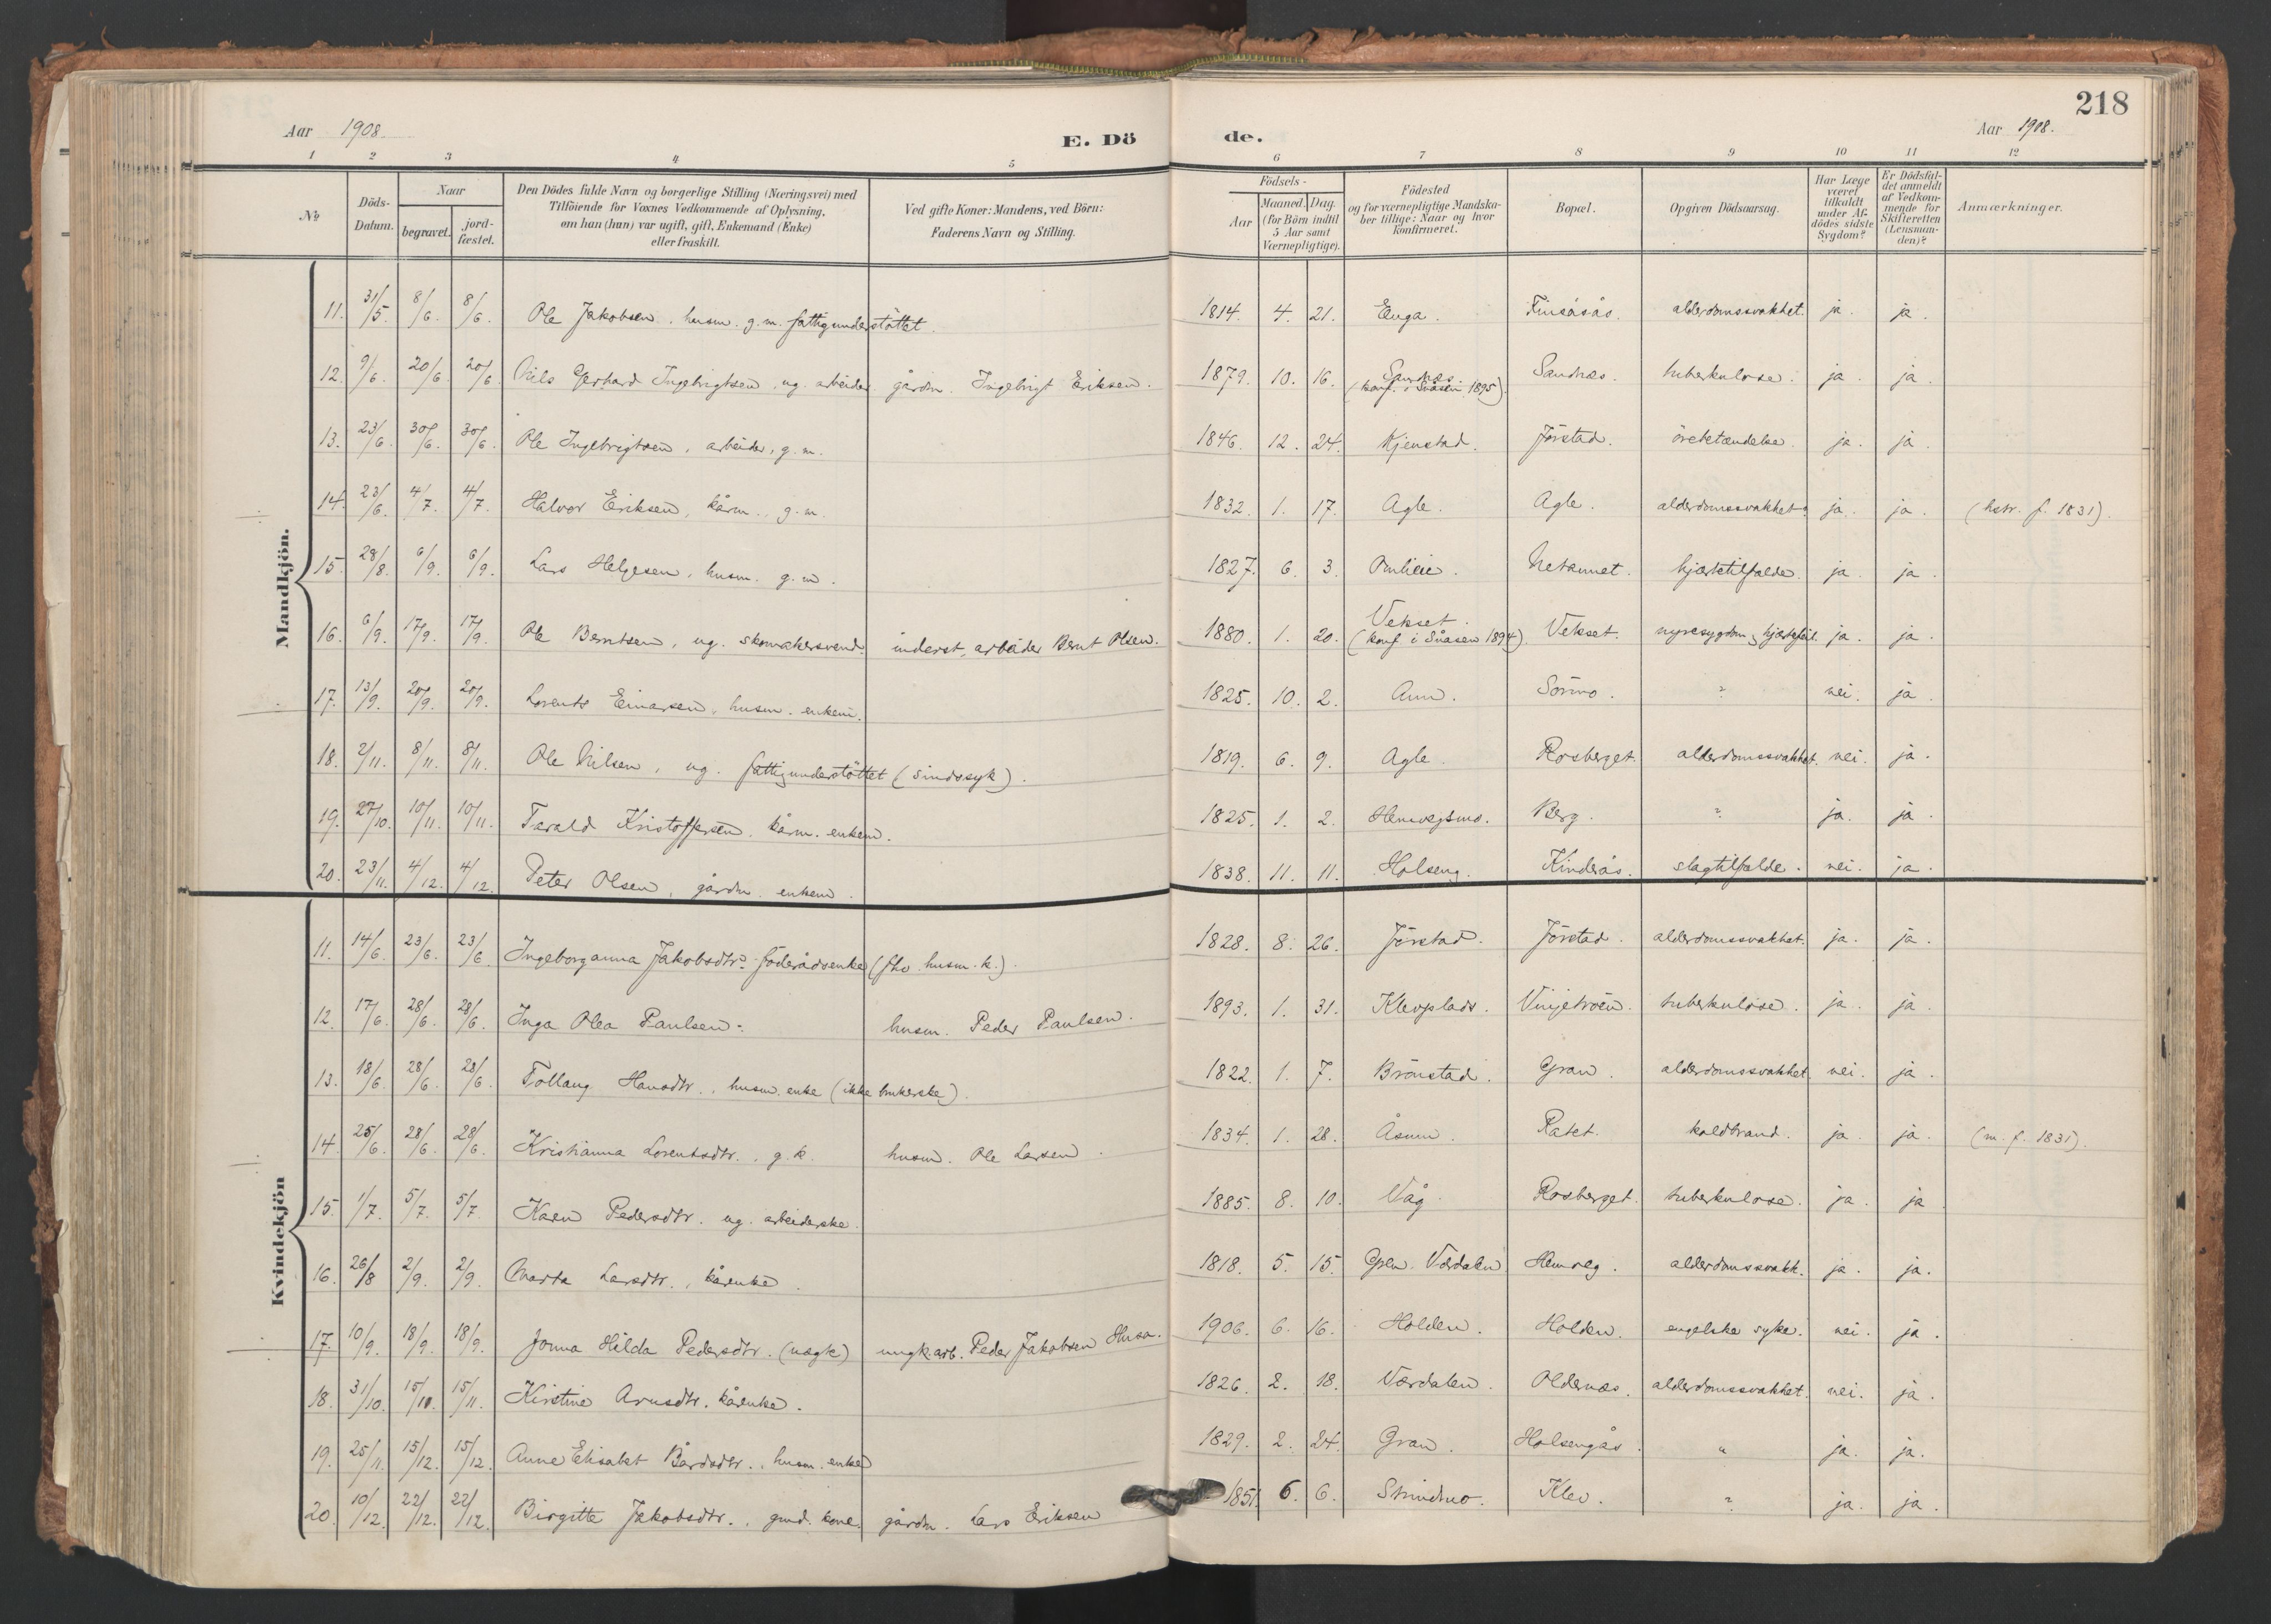 218
Aar 1908.
E. Dö
de.
Aar 1908.
1 2 3 4 5 6 7 8 9 10 11 12
№
Döds-Datum.
Naar
begravet.
jord-fæstet.
Den Dödes fulde Navn og borgerlige Stilling (Næringsvei) med
Tilföiende for Voxnes Vedkommende af Oplysning,
om han (hun) var ugift, gift, Enkemand (Enke)
eller fraskilt.
Ved gifte Koner: Mandens, ved Börn:
Faderens Navn og Stilling.
Födsels-
Aar
Maaned. Dag.
(for Börn indtil
5 Aar samt
Værnepligtige).
Födested
og for værnepligtige Mandska-
ber tillige: Naar og hvor
konfirmeret.
Bopæl.
Opgiven Dödsaarsag.
Har Læge
været
tilkaldt
under Af-
dödes sidste
Sygdom?
Er Dödsfal-
det anmeldt
af Vedkom-
mende for
Skifteretten
(Lensman-
den)?
Anmærkninger.
Mandkjön.
11. 31/5. 8/6. 8/6. Ole Jakobsen. husm. g.m. fattigunderstöttet. 1814. 4. 21. Enga. Finsåsås. alderdomssvakhet. ja. ja.
12. 9/6. 20/6. 20/6. Nils Gerhard Ingebrigtsen, ug. arbeider gårdm. Ingebrigt Eriksen. 1879. 10. 16. Sandnæs. (konf. i Snåsen 1895). Sandnæs. tuberkulose. ja. ja.
13. 23/6. 30/6. 30/6. Ole Ingebrigtsen, arbeider, g.m. 1846. 12. 24. Kjenstad. Jörstad. örebetændelse. ja. ja.
14. 23/6. 4/7. 4/7. Halvor Eriksen, kårm., g.m. 1832. 1. 17. Agle. Agle. alderdomssvakhet. ja. ja. (hstr. f. 1831).
15. 28/8. 6/9. 6/9. Lars Helgesen, husm. g.m. 1827. 6. 3. hjærtetilfælde. ja. ja.
16. 6/9. 17/9. 17/9. Ole Berntsen, ug. skomakersvend. inderst, arbeider Bernt Olsen. 1880. 1. 20. Vekset. (konf. i Snåsen 1894). Vekset. nyresygdom, hjærtefeil. ja. ja.
17. 13/9. 20/9. 20/9. Lorents Einarsen, husm. enkem. 1825. 10. 2. Aun. Sörmo. ? nei. ja.
18. 2/11. 8/11. 8/11. Ole Nilsen, ug. fattigunderstöttet (sindssyk). 1819. 6. 9. Agle. Rosberget. alderdomssvakhet. nei. ja.
19. 27/10. 10/11. 10/11. Tarald Kristoffersen, kårm. enkem. 1825. 1. 2. Hemvegsmo. Berg. ? ja. ja.
20. 23/11. 4/12. 4/12. Peter Olsen, gårdm. enkem. 1838. 11. 11. Holseng. Kinderås. slagtilfælde. nei. ja.
Kvindekjön
11. 14/6. 23/6. 23/6. Ingeborganna Jakobsdtr. föderådsenke (fhv. husm. k.). 1828. 8. 26. Jörstad. Jörstad. alderdomssvakhet. ja. ja.
12. 17/6. 28/6. 28/6. Inga Olea Paulsen. husm. Peder Paulsen. 1893. 1. 31. Klevplads. Vinjetroen. tuberkulose. ja. ja.
13. 18/6. 28/6. 28/6. Tollaug Hansdtr., husm. enke (ikke brukerske). 1822. 1. 7. Brönstad. Gran. alderdomssvakhet. nei. ja.
14. 25/6. 28/6. 28/6. Kristianna Lorentsdtr., g.k. husm. Ole Larsen. 1834. 1. 28. Åsum. Ratet. koldbrand. ja. ja. (m. f. 1831).
15. 1/7. 5/7. 5/7. Karen Pedersdtr. ug. arbeiderske. 1885. 8. 10. Våg. Rosberget. tuberkulose. ja. ja
16. 26/8 2/9. 2/9. Marta Larsdtr., kårenke. 1818. 5. 15. Værdalen Hemveg. alderdomssvakh. ja. ja.
17. 10/9. 18/9. 18/9. Jonna Hilda Pedersdtr. (uægte) ungk. arb. Peder Jakobsen Husa. 1906. 6. 16. Holden. Holden. engelske syke. nei. ja.
18. 31/10. 15/11. 15/11. Kirstine Arnsdtr. kårenke. 1826. 2. 18. Værdalen. Oldernæs. alderdomssvakhet. nei. ja.
19. 25/11. 15/12. 15/12. Anne Elisabet Bårdsdtr., husm. enke 1829. 2. 24. Gran. Holsengås. " ja. ja.
20. 10/12. 22/12. 22/12. Birgitte Jakobsdtr., gmd. kone. gårdm. Lars Eriksen 1851. 6. 6. Strindmo. Klev. ? ja. ja.